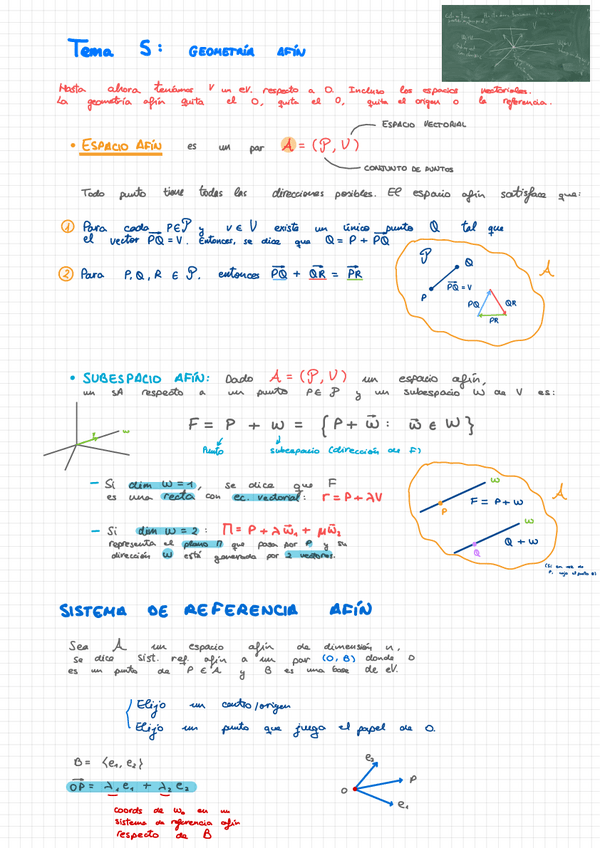 Tema 5: GEOMETRÍA AFÍN
Hasta ahora teníamos V un eV. respecto a O. Incluso los espacios vectoriales.
La geometría afín quita el O, quita el 0, quita el origen o la referencia.
ESPACIO VECTORIAL
• ESPACIO AFÍN es un par A = (P, V)
CONJUNTO DE PUNTOS
Todo punto tiene todas las direcciones posibles. El espacio afín satisface que:
1 Para cada P∈P y v∈V existe un único punto Q tal que
el vector PQ = V. Entonces, se dice que Q = P + PQ
2 Para P, Q, R ∈ P. entonces PQ + QR = PR
P
Q
P
PQ = V
PQ
QR
PR
A
• SUBESPACIO AFÍN: Dado A = (P, V) un espacio afín,
un SA respecto a un punto P∈P y un subespacio W de V es:
w
F = P + W = {P + w : w ∈ W}
Punto
subespacio (dirección de F)
– Si dim W = 1, se dice que F
es una recta con ec. vectorial: r = P + λV
– Si dim W = 2: Π = P + λw₁ + μw₂
representa el plano Π que pasa por P y su
dirección W está generada por 2 vectores.
W
P
F = P + W
W
Q
Q + W
A
SISTEMA DE REFERENCIA AFÍN
Sea A un espacio afín de dimensión n,
se dice sist. ref. afín a un par (O, B) donde O
es un punto de P∈A y B es una base de eV.
Elijo un centro/origen
Elijo un punto que juega el papel de O.
B = {e₁, e₂}
OP = λ₁e₁ + λ₂e₂
coords de w₀ en un
sistema de referencia afín
respecto de B
e₂
P
O
e₁